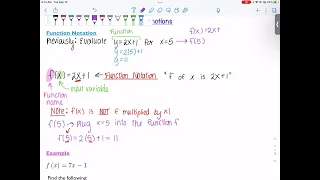 Function Notation
Previously: Evaluate y=2x+1 for x=5
Function
y=2(5)+1
y=11
f(x)=2x+
→ f(5)
f(x)=2x+1 ← Function Notation "f of x is 2x+1"
input variable
Function name
Note: f(x) is NOT f multiplied by x!
f(5) → Plug x=5 into the function f
f(5)=2(5)+1=11
Example
f(x) = 7x − 3
Find the following: